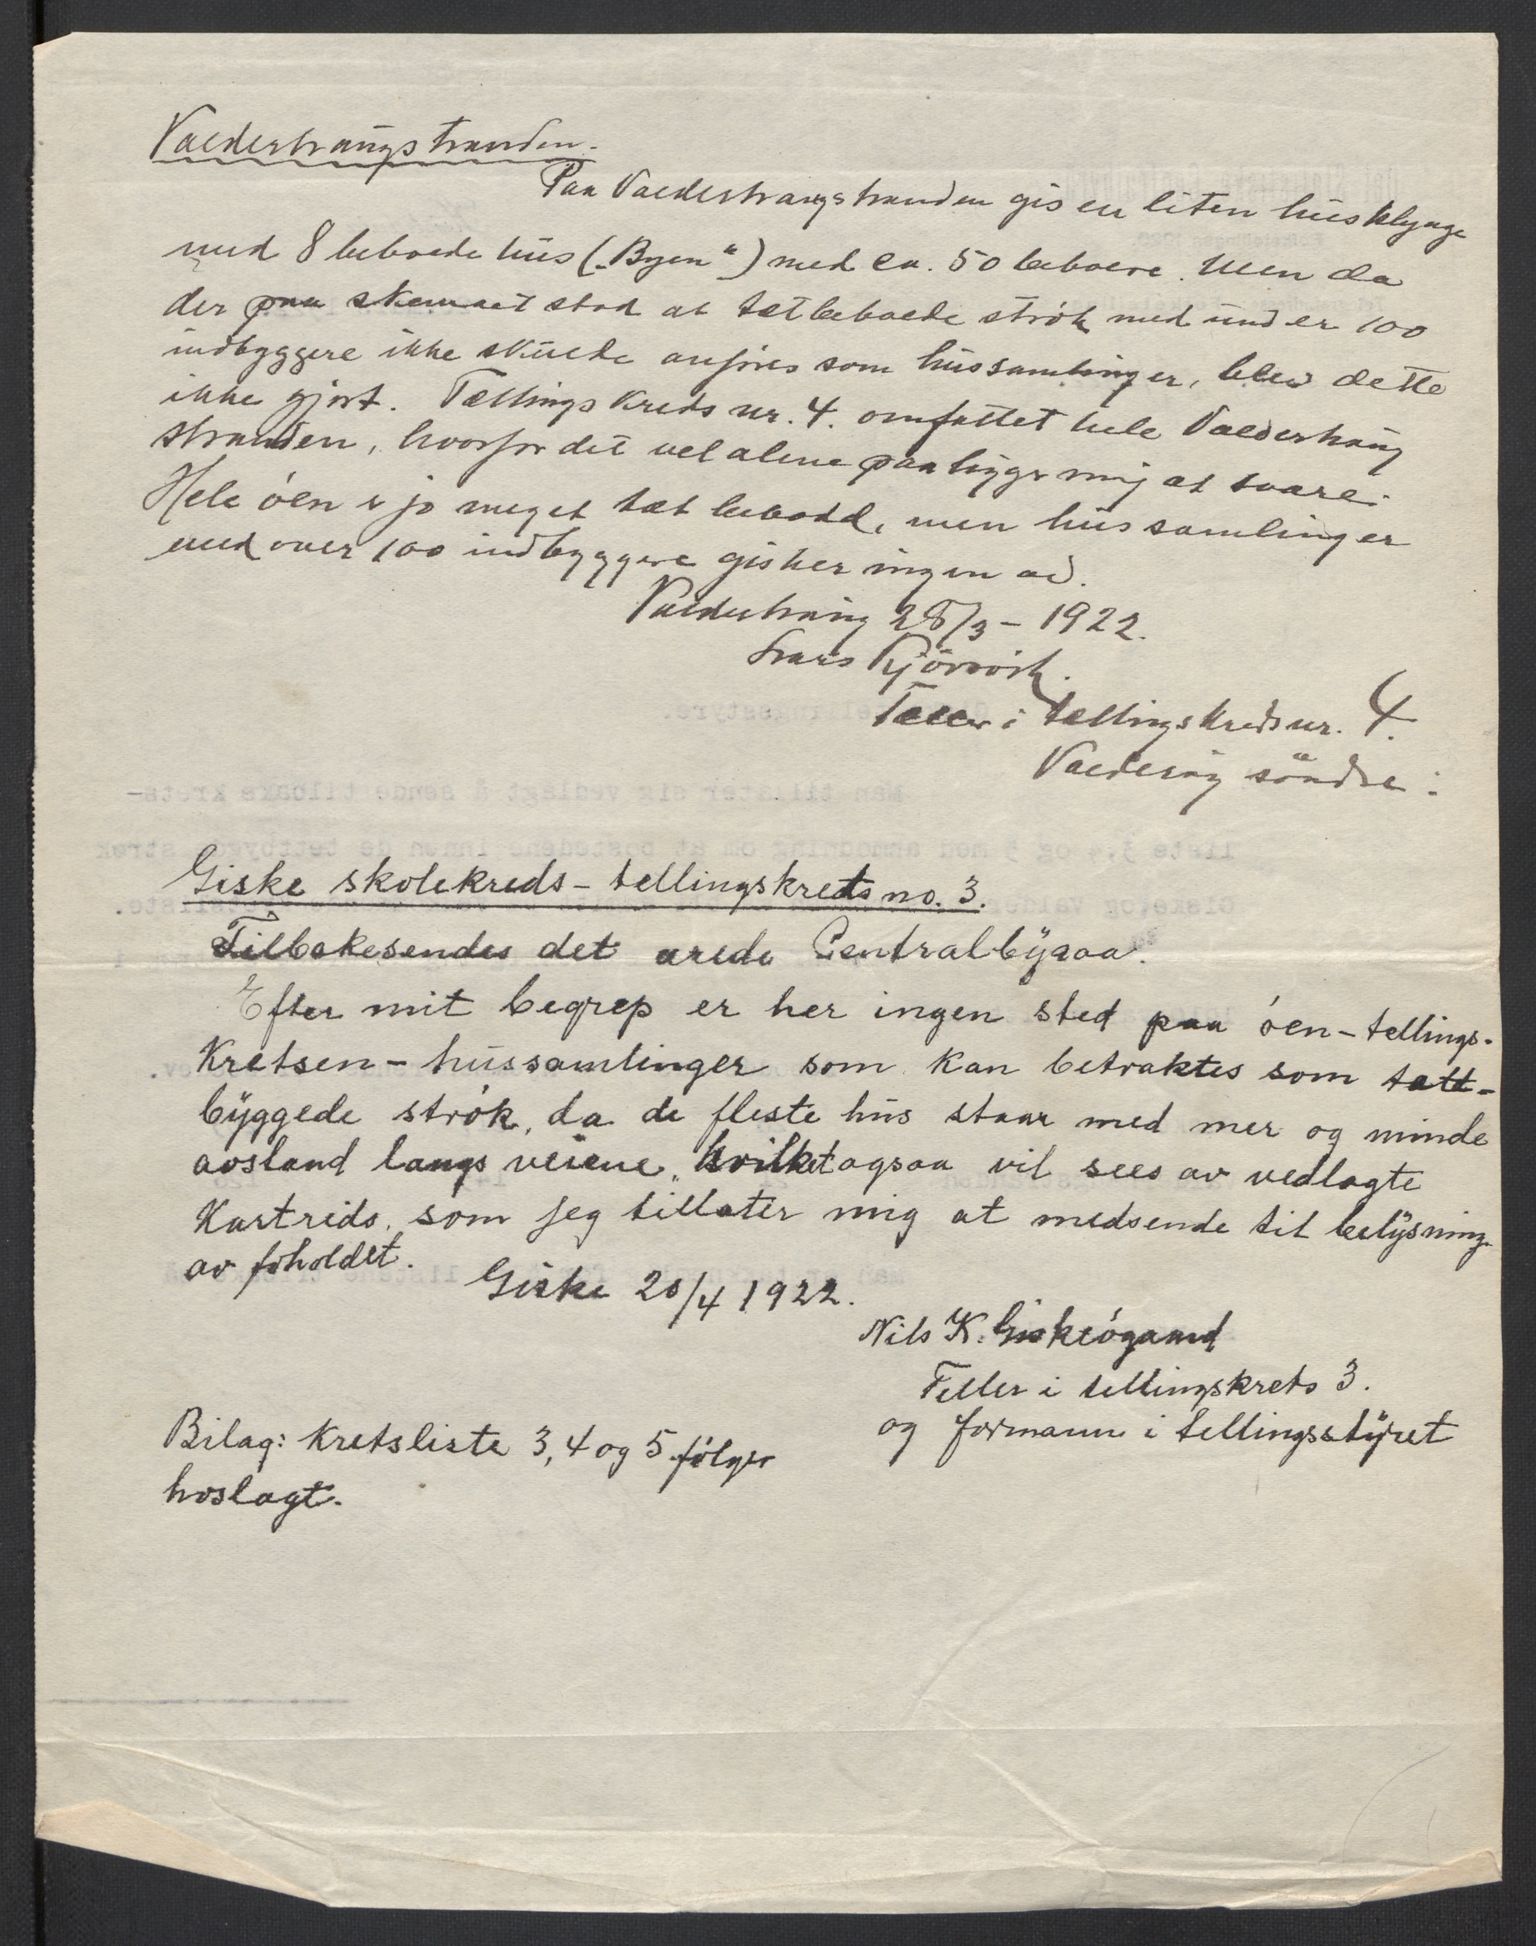 Valderhaugstranden.
Paa Valderhaugstranden gis en liten husklynge
med 8 beboede hus („Byen") med ca. 50 beboere. Men da
der paa skemaet stod at tætbeboede strøk med under 100
indbyggere ikke skulde anføres som hussamlinger, blev dette
ikke gjort. Tællingskreds nr. 4. omfattet hele Valderhaug
stranden, hvorfor det vel alene paaligger mig at svare.
Hele øen er jo meget tæt bebodd, men hussamlinger
med over 100 indbyggere gis her ingen av.
Valderhaug 28/3 – 1922.
Lars
Tæller i tællingskreds nr. 4.
Valderøy søndre.
Giske skolekreds – tellingskrets no. 3.
Tilbakesendes det ærede Centralbyraa.
Efter mit begrep er her ingen sted paa øen – tellings-
kretsen – hussamlinger som kan betraktes som tætt-
byggede strøk, da de fleste hus staar med mer og minde
avstand langs veiene, hvilket ogsaa vil sees av vedlagte
Kartrids, som jeg tillater mig at medsende til belysning
av foholdet.
Giske 20/4 1922.
Nils K. Giskeøgaard
Teller i tellingskrets 3.
og formann i tellingsstyret
Bilag: Kretsliste 3, 4 og 5 følger
hoslagt.